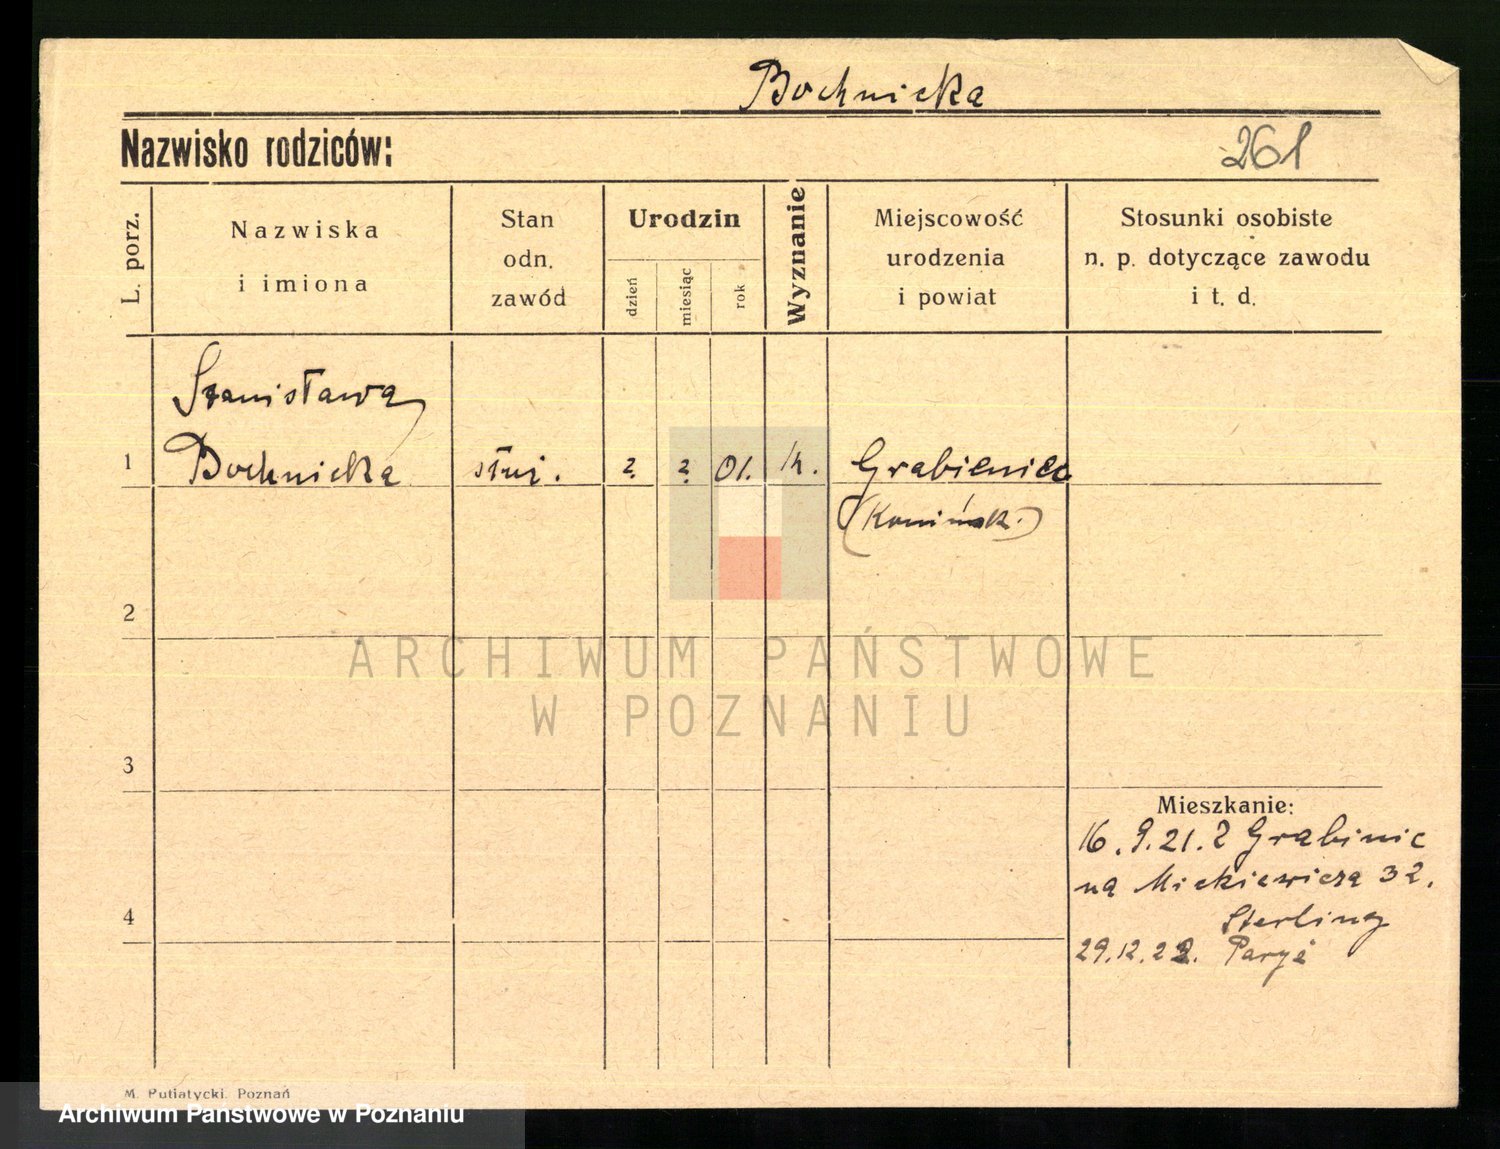 Bochnicka
Nazwisko rodziców:
261
L. porz.
Nazwiska
i imiona
Stan
odn.
zawód
Urodzin
dzień
miesiąc
rok
Wyznanie
Miejscowość
urodzenia
i powiat
Stosunki osobiste
n. p. dotyczące zawodu
i t. d.
Stanisława
1 Bochnicka służ. 2. 2. 01. /k. Grabieniec
(Konińsk.)
2
ARCHIWUM PAŃSTWOWE
W POZNANIU
3
Mieszkanie:
16.9.21. z Grabinic
na Mickiewicza 32.
4
Sterling
29.12.22. Paryż
M. Putiatycki. Poznań
Archiwum Państwowe w Poznaniu